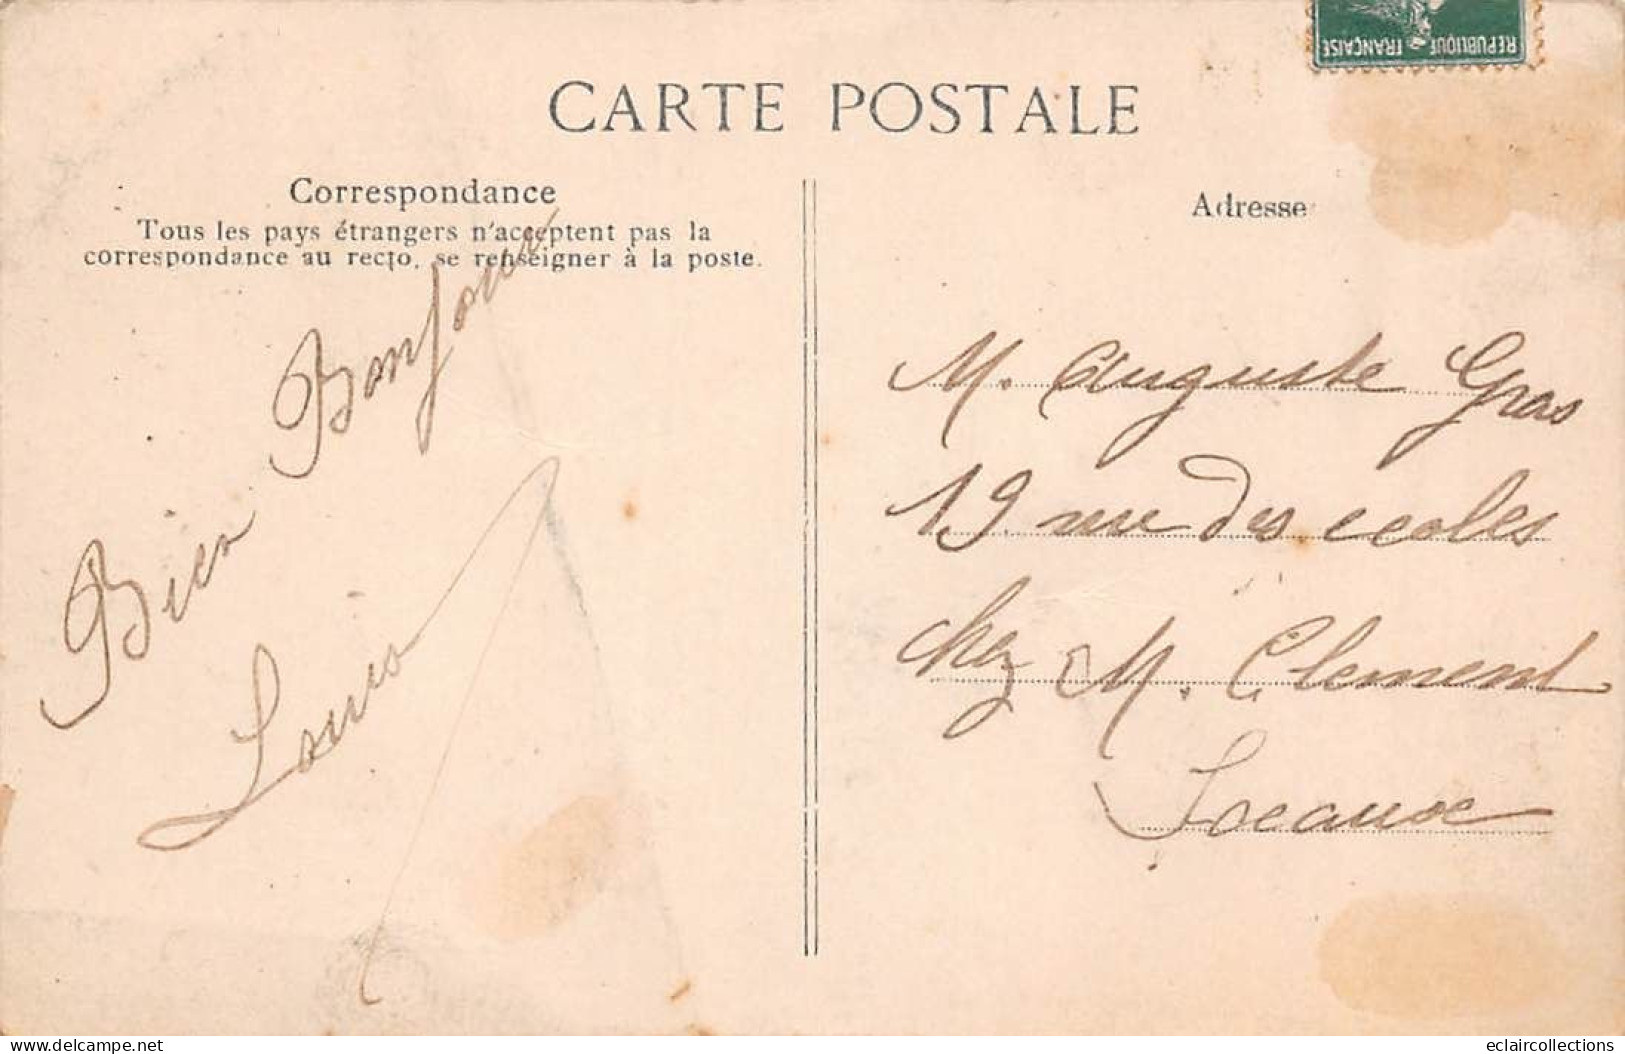 RÉPUBLIQUE FRANÇAISE
CARTE POSTALE
Correspondance
Tous les pays étrangers n'acceptent pas la
correspondance au recto, se renseigner à la poste.
Adresse
Bien Bonjour
Louis
M. Auguste Gras
19 rue des ecoles
chez M. Clement
Sceaux
delcampe.net
eclaircollections